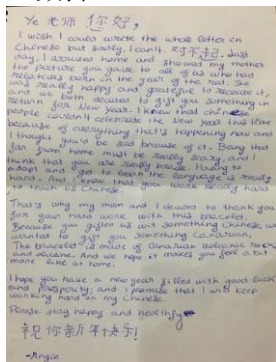 Ye 老师 你好,
I wish I could wrote the whole letter in
Chinese but sadly, I can't. 对不起. Last
day, I arrived home and showed my mother
the picture you gave to all of us who had
relatives born in the year of the rat. She
was really happy and grateful to receive it,
and we both decided to gift you something in
return for New Year. I know that Chinese
people couldn't celebrate the New Year this time
because of everything that's happening now and
I thought you'd be sad because of it. Being that
far from home must be really scary, and I
think that you are really brave. Having to
adapt and get to learn the language is really
hard. And I know that you work really hard
to teach us Chinese.
That's why my mom and I decided to thank you
for your hard work with this bracelet.
Because you gifted us with something Chinese, we
wanted to gift you something Canarian.
The bracelet is made of Canarian Volcanic Rock
and olivine. And we hope it makes you feel a bit
more like at home.
I hope you have a new year filled with good luck
and prosperity, and I promise that I will keep
working hard on my Chinese.
Please stay happy and healthy
祝你新年快乐!
-Angie